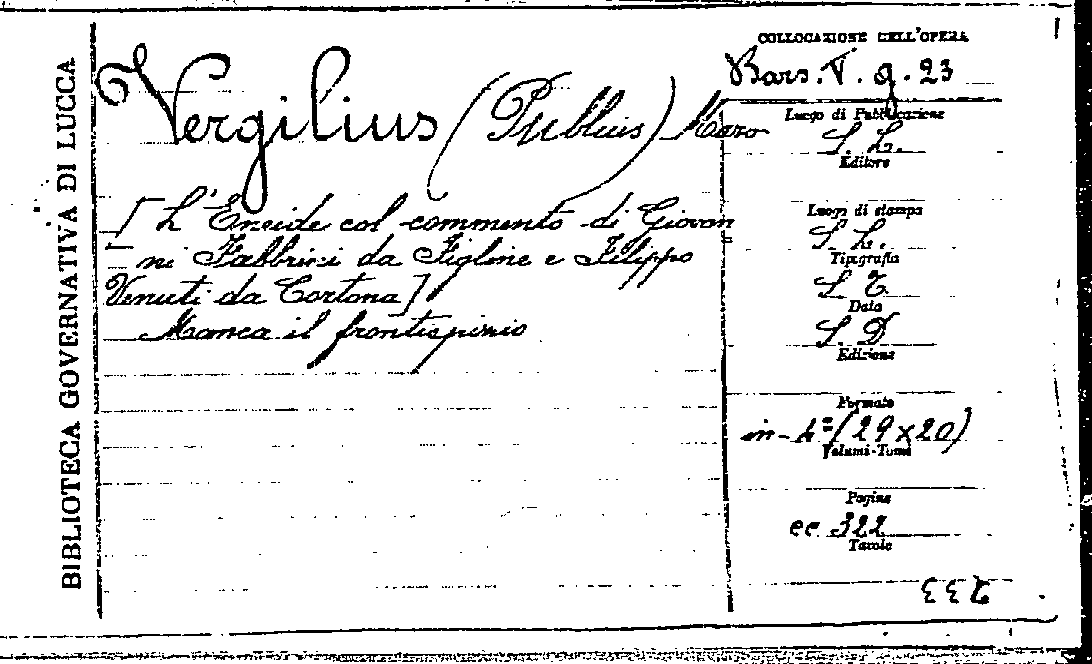 BIBLIOTECA GOVERNATIVA DI LUCCA
Vergilius (Publius) Maro
[L'Eneide col commento di Giovan
ni Fabbrini da Figline e Filippo
Venuti da Cortona]
Manca il frontispizio
COLLOCAZIONE DELL'OPERA
Bars. V. g. 23
Luogo di Pubblicazione
S. L.
Editore
Luogo di stampa
S. L.
Tipografia
S. T.
Data
S. D
Edizione
Formato
in-4º (29x20)
Volumi-Tomi
Pagine
cc. 322
Tavole
233